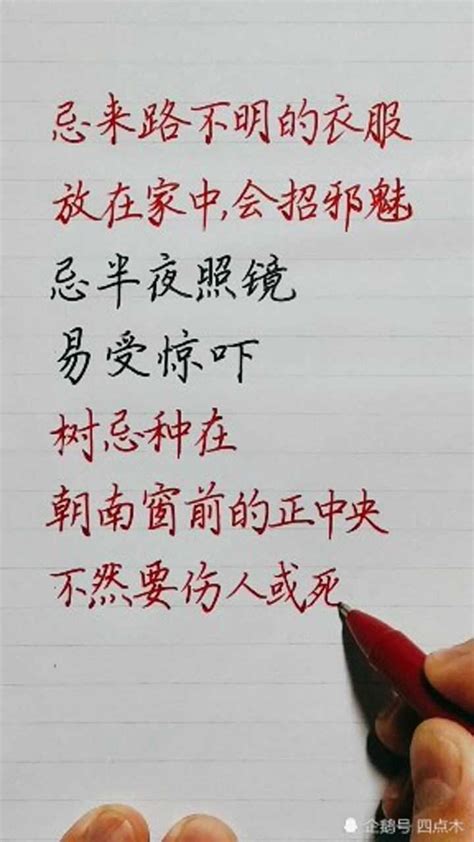 忌来路不明的衣服
放在家中,会招邪魅
忌半夜照镜
易受惊吓
树忌种在
朝南窗前的正中央
不然要伤人或死
企鹅号 四点木